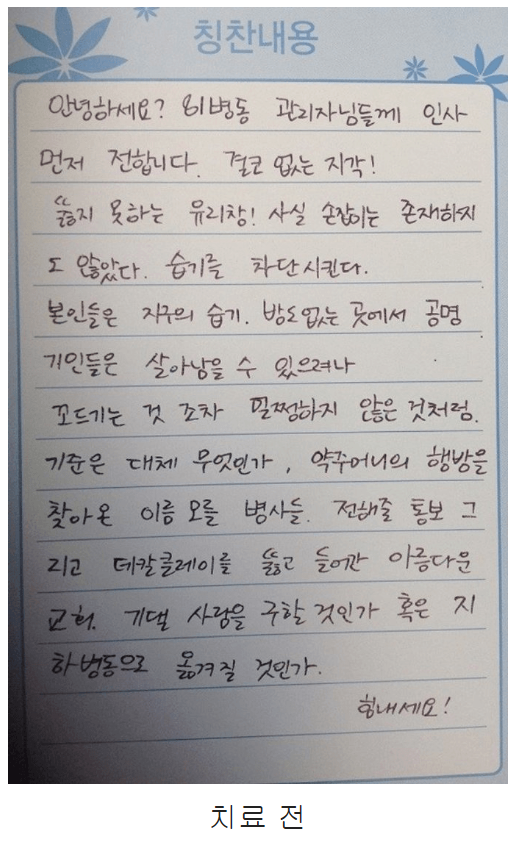 칭찬내용
안녕하세요? 81병동 관리자님들께 인사
먼저 전합니다. 결코 없는 지각!
뚫지 못하는 유리창! 사실 손잡이는 존재하지
도 않았다. 습기를 차단시킨다.
본인들은 지구의 습기. 방도없는 곳에서 공명
기인들은 살아남을 수 있으려나
꼬드기는 것 조차 멀쩡하지 않은 것처럼.
기준은 대체 무엇인가, 약주머니의 행방을
찾아온 이름 모를 병사들. 전해줄 통보 그
리고 데칼클레이를 뚫고 들어간 아름다운
교회. 기댈 사람을 구할 것인가 혹은 지
하병동으로 옮겨질 것인가.
힘내세요!
치료 전